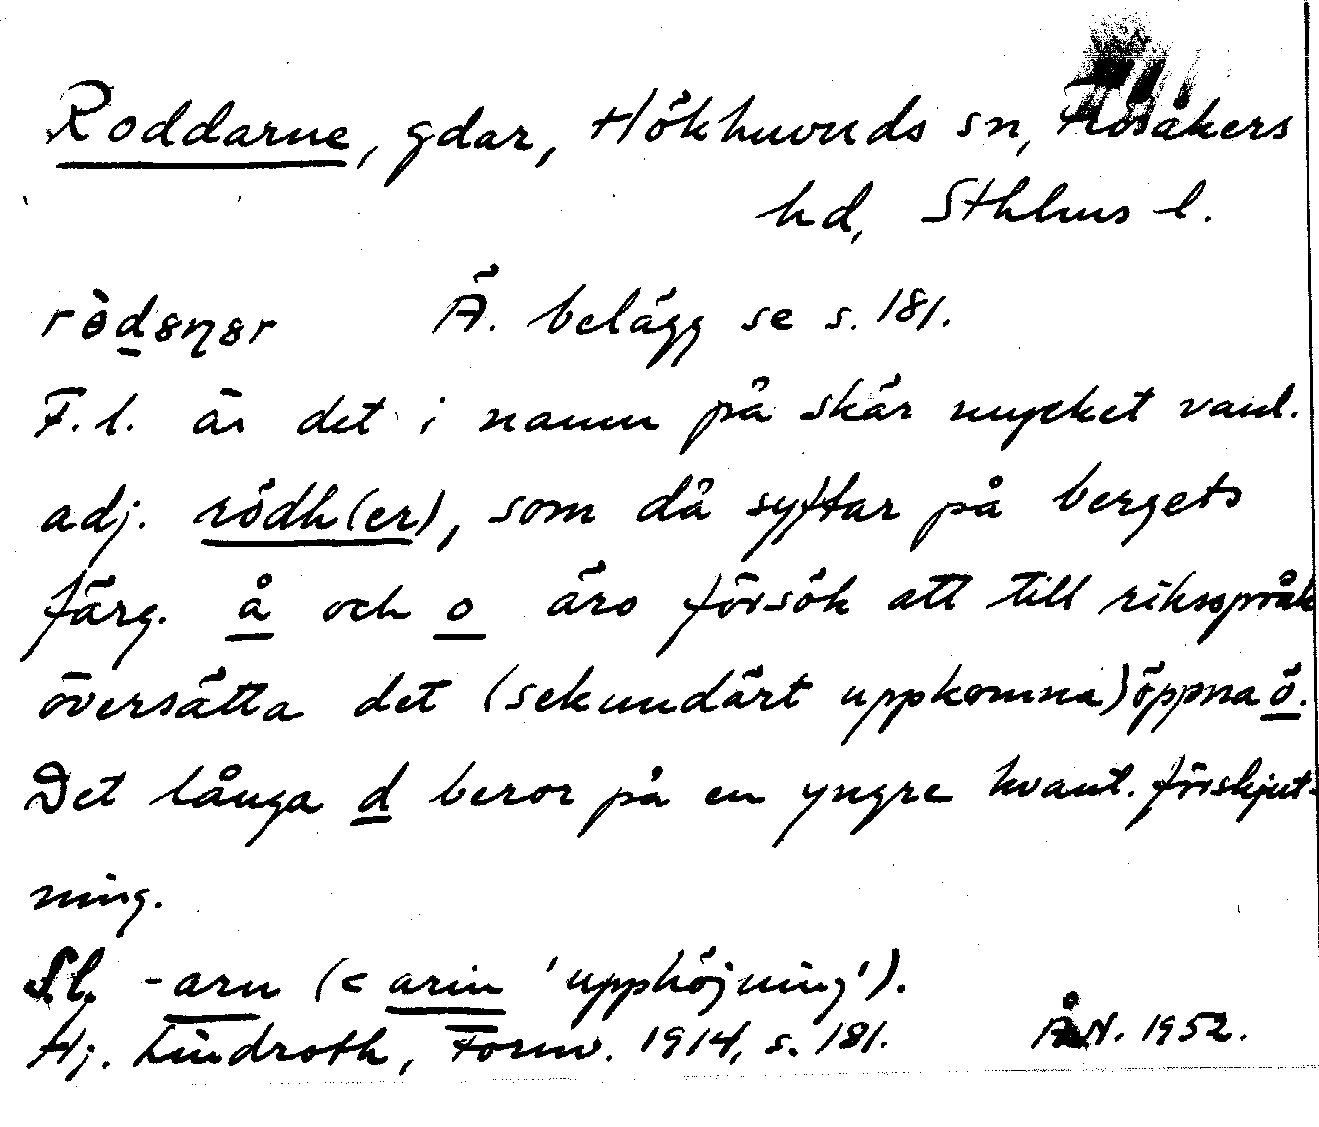 Roddarne, gdar, Hökhuvuds sn, Frösåkers
hd, Sthlms l.
Ä. belägg se s. 181.
F.l. är det i namn på skär mycket vanl.
adj. rödh(er), som då syftar på bergets
färg. å och o äro försök att till riksspråk
översätta det (sekundärt uppkomna) öppna ö.
Det långa d beror på en yngre kvant. förskjut-
ning.
S.l. -arn (< arin 'upphöjning').
Hj. Lindroth, Fornv. 1914, s. 181. Å.N. 1952.